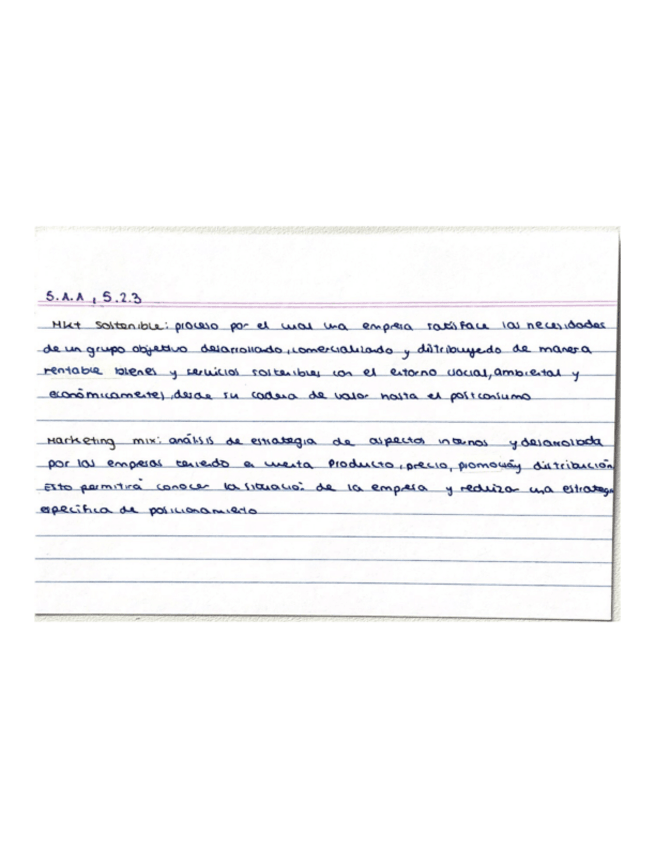 S.A.A, 5.2.3
Mkt Sostenible: proceso por el cual una empresa satisface las necesidades
de un grupo objetivo desarrollando, comercializando y distribuyendo de manera
rentable bienes y servicios sostenibles con el entorno social, ambiental y
económicamente, desde su cadena de valor hasta el postconsumo
Marketing mix: análisis de estrategia de aspectos internos y desarrollada
por las empresas teniendo en cuenta Producto, precio, promoción y distribución
Esto permitirá conocer la situación de la empresa y realizar una estrategia
especifica de posicionamiento